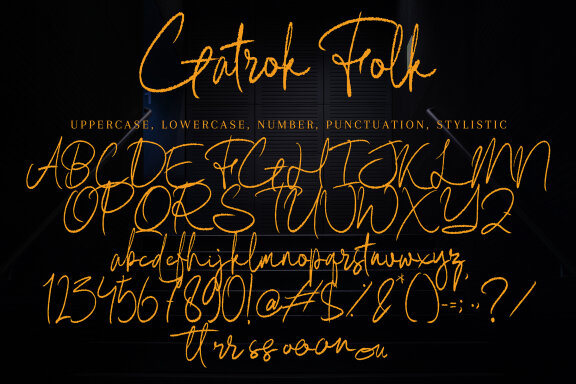 Gatrok Folk
UPPERCASE, LOWERCASE, NUMBER, PUNCTUATION, STYLISTIC
ABCDEFGHIJKLMN
OPQRSTUVWXYZ
abcdefghijklmnopqrstuvwxyz
1234567890!@#$%&*()-=;.,?/
tt rr ss oo oo on ou